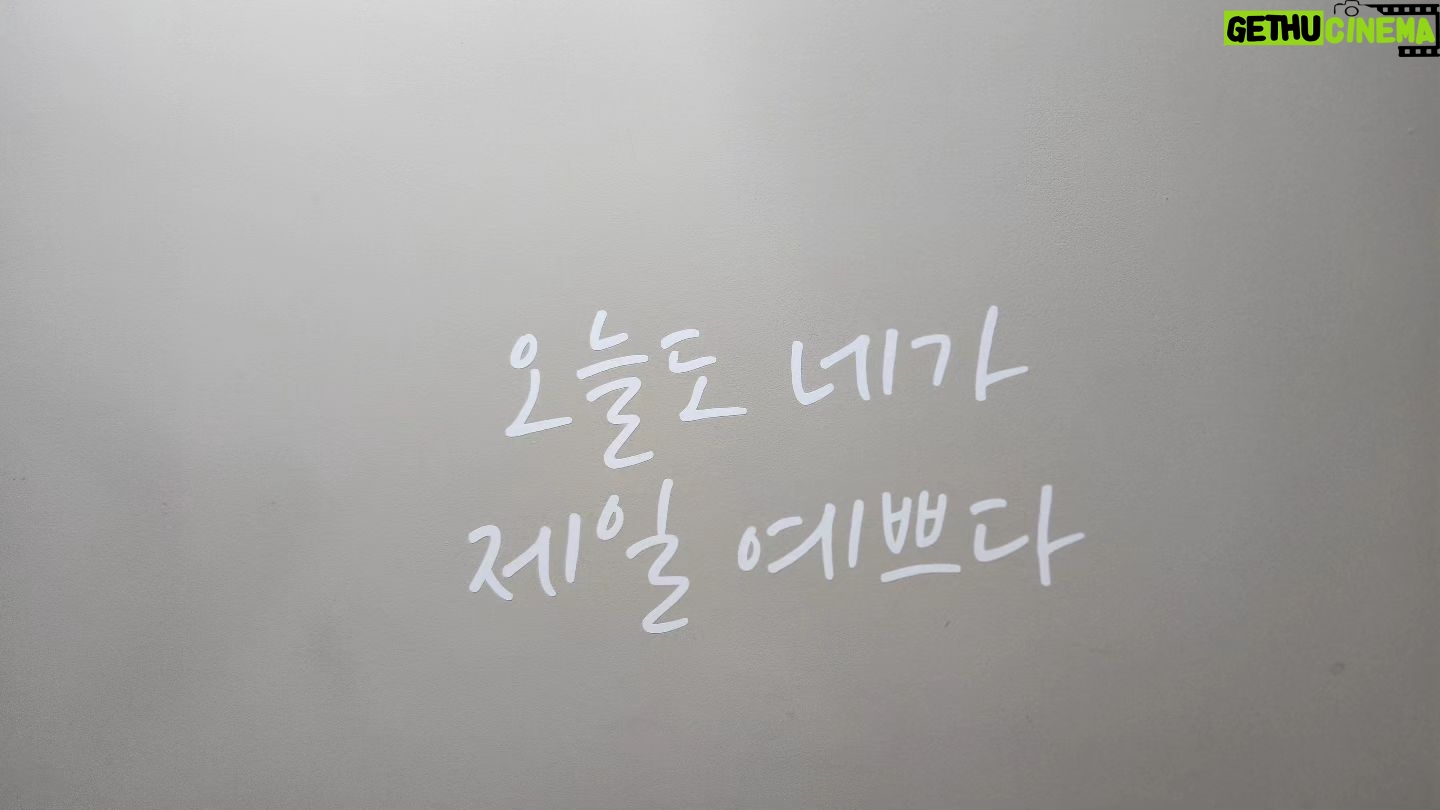 GETHUCINEMA
오늘도 네가
제일 예쁘다